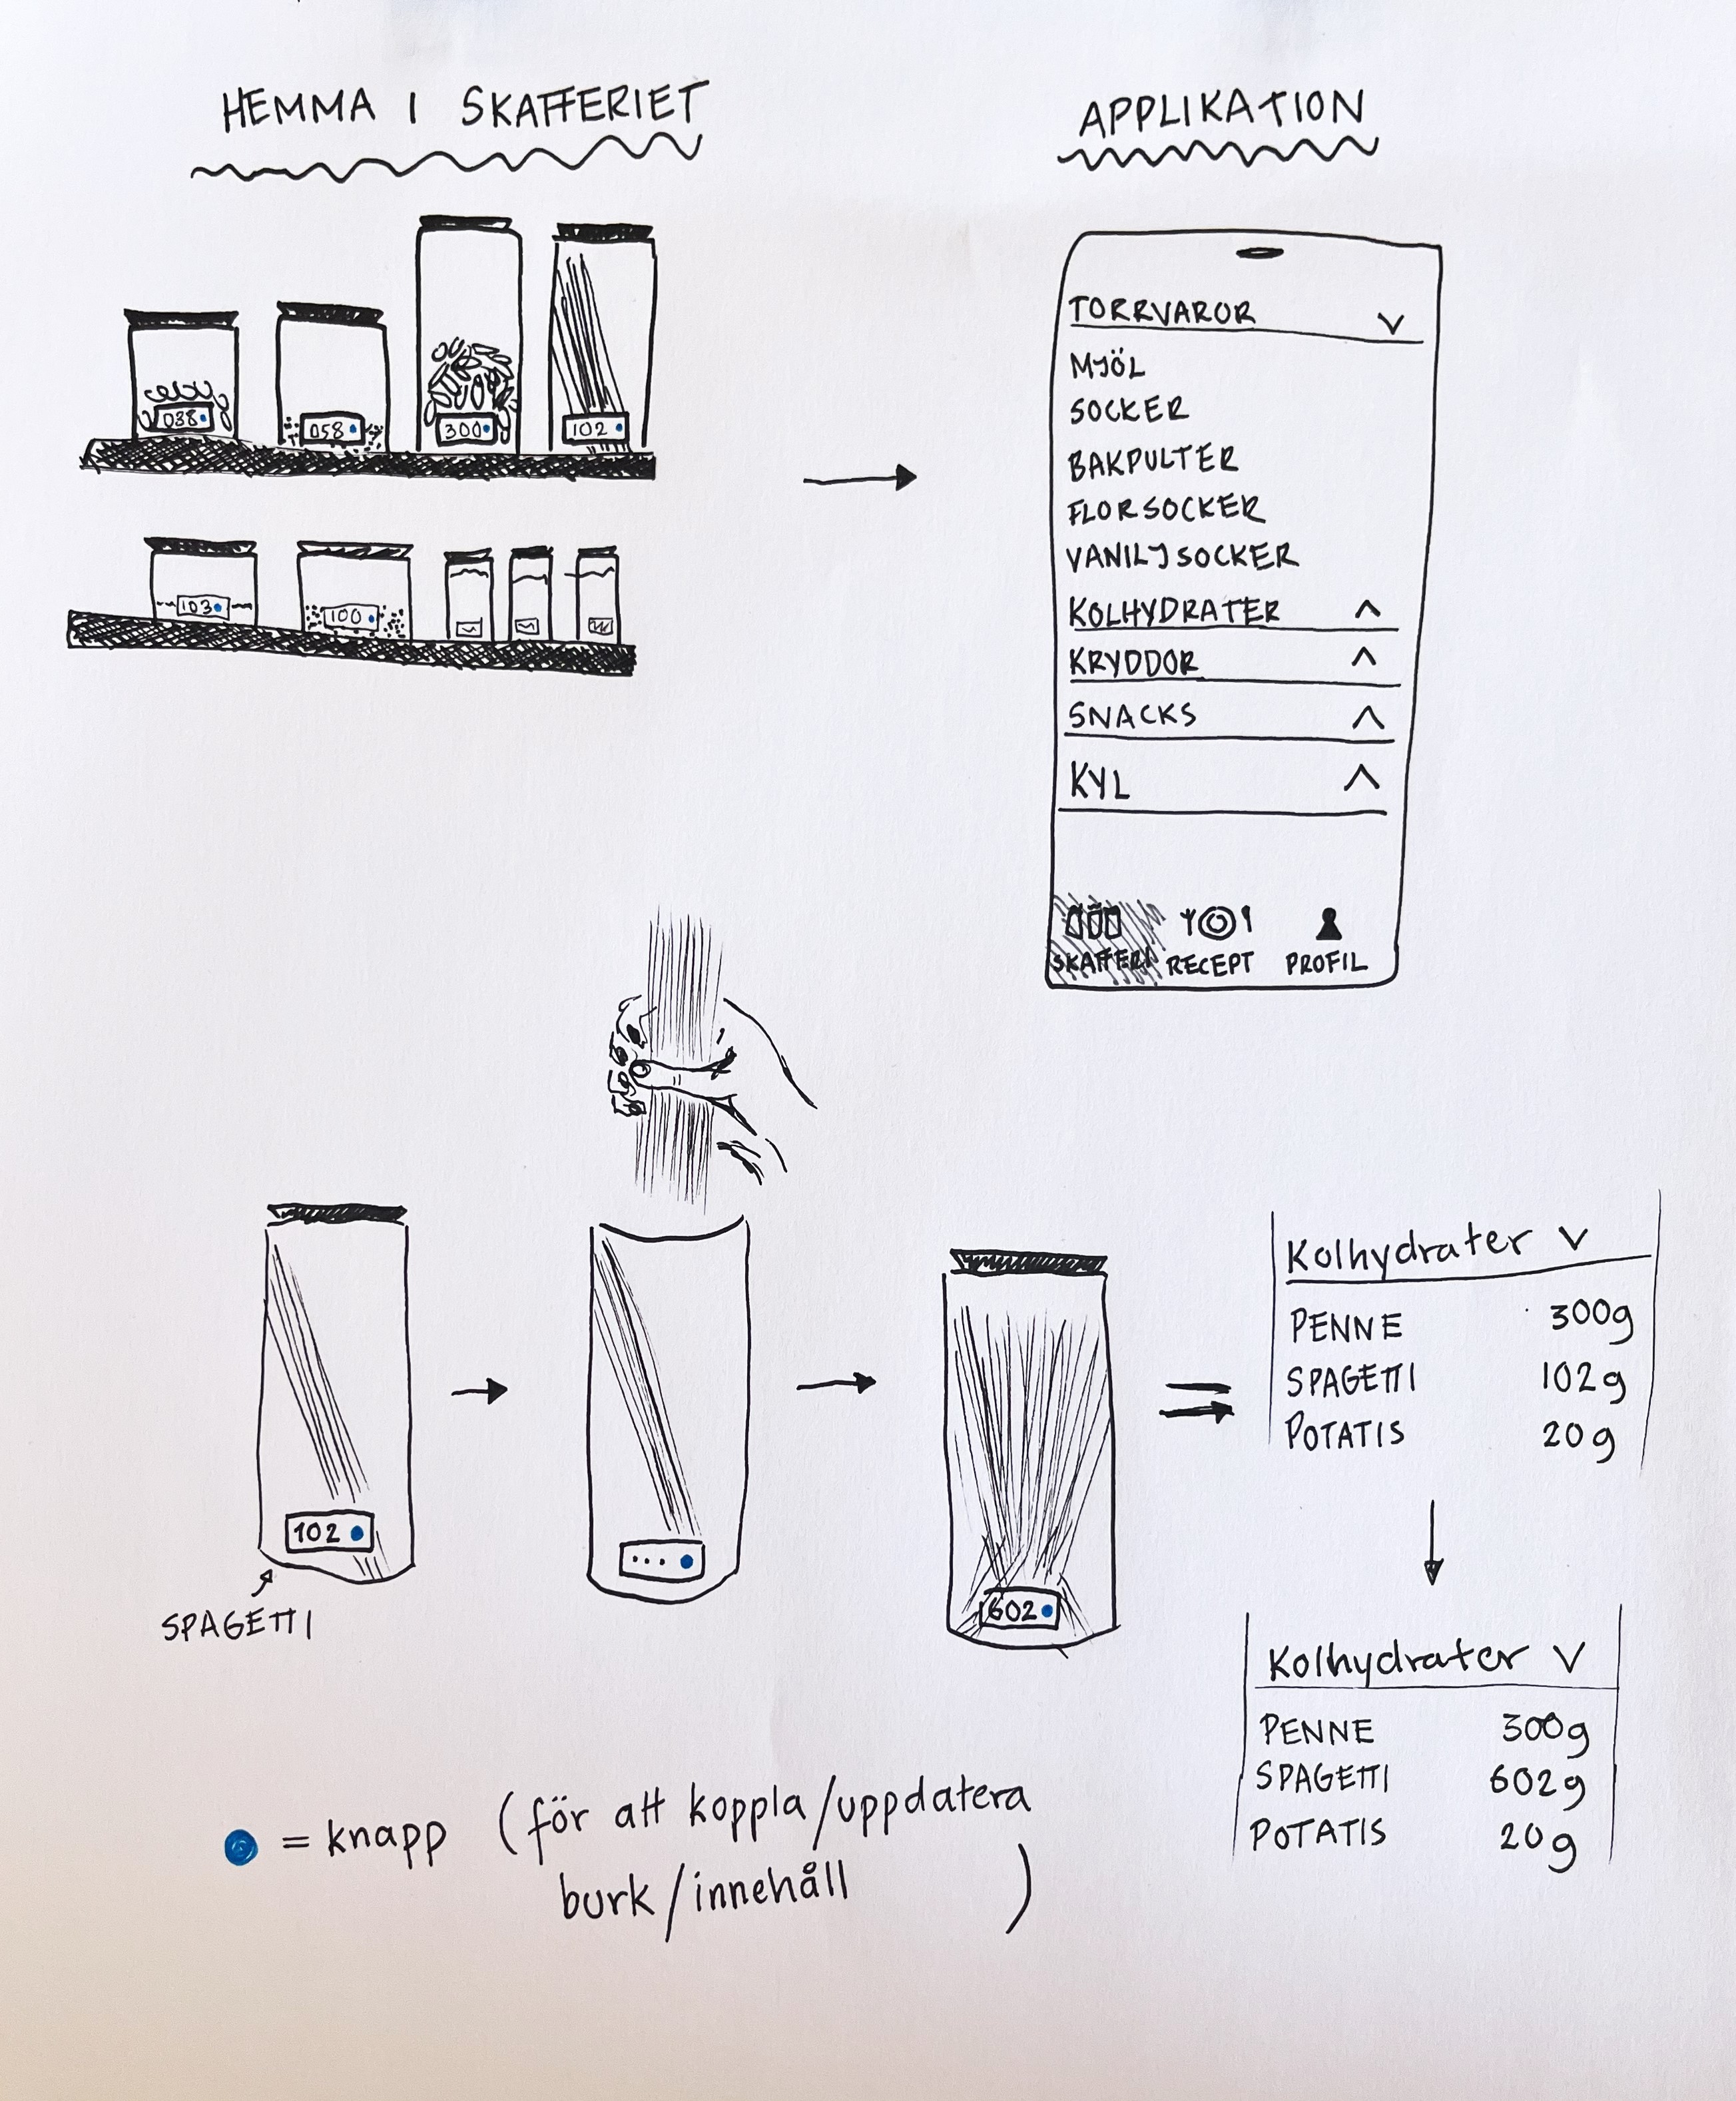 HEMMA I SKAFFERIET
APPLIKATION
038
058
300
102
103
100
TORRVAROR V
MJÖL
SOCKER
BAKPULTER
FLORSOCKER
VANILJSOCKER
KOLHYDRATER
KRYDDOR
SNACKS
KYL
SKAFFERI RECEPT PROFIL
102
SPAGETTI
...
602
Kolhydrater V
PENNE 300g
SPAGETTI 102g
POTATIS 20g
Kolhydrater V
PENNE 300g
SPAGETTI 602g
POTATIS 20g
= knapp (för att koppla/uppdatera
burk/innehåll )